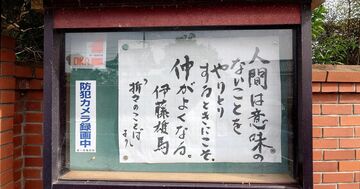 人間は意味の
ないことを
やりとり
するときにこそ、
仲がよくなる。
伊藤雄馬
「折々のことば」より
防犯カメラ録画中